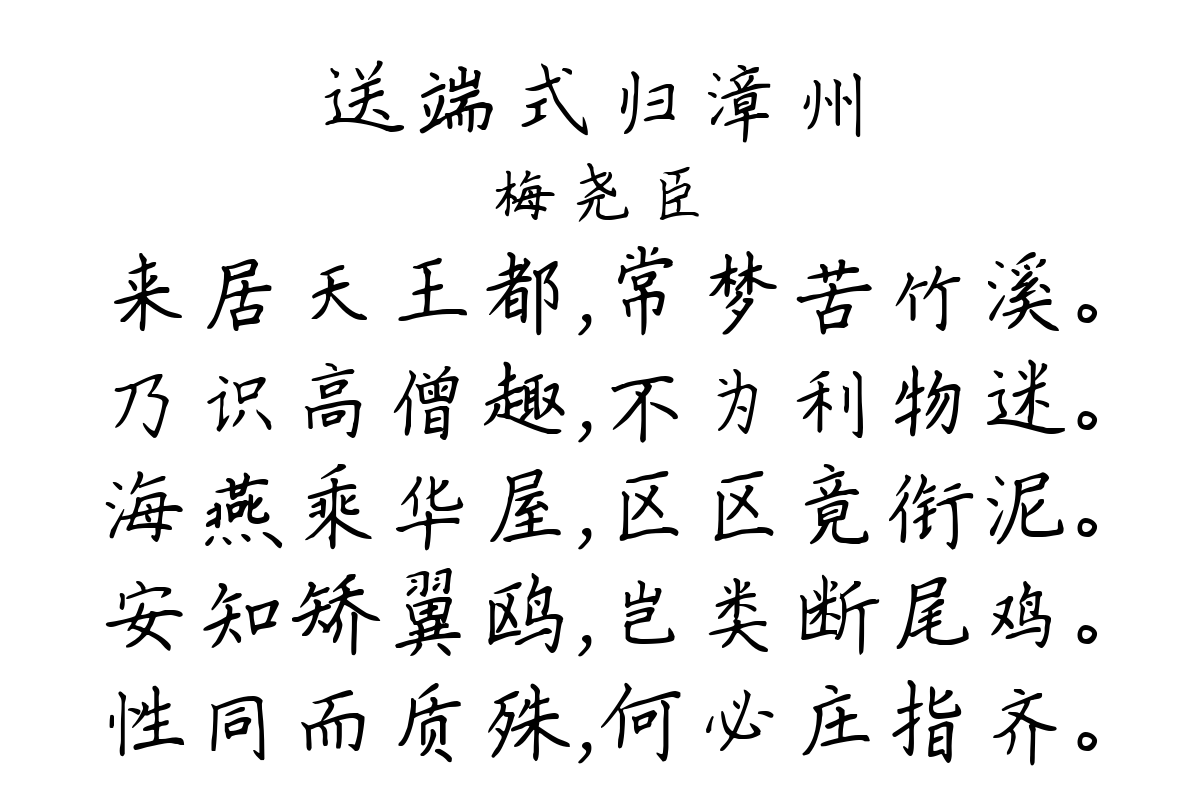 送端式归漳州
梅尧臣
来居天王都,常梦苦竹溪。
乃识高僧趣,不为利物迷。
海燕乘华屋,区区竟衔泥。
安知矫翼鸥,岂类断尾鸡。
性同而质殊,何必庄指齐。